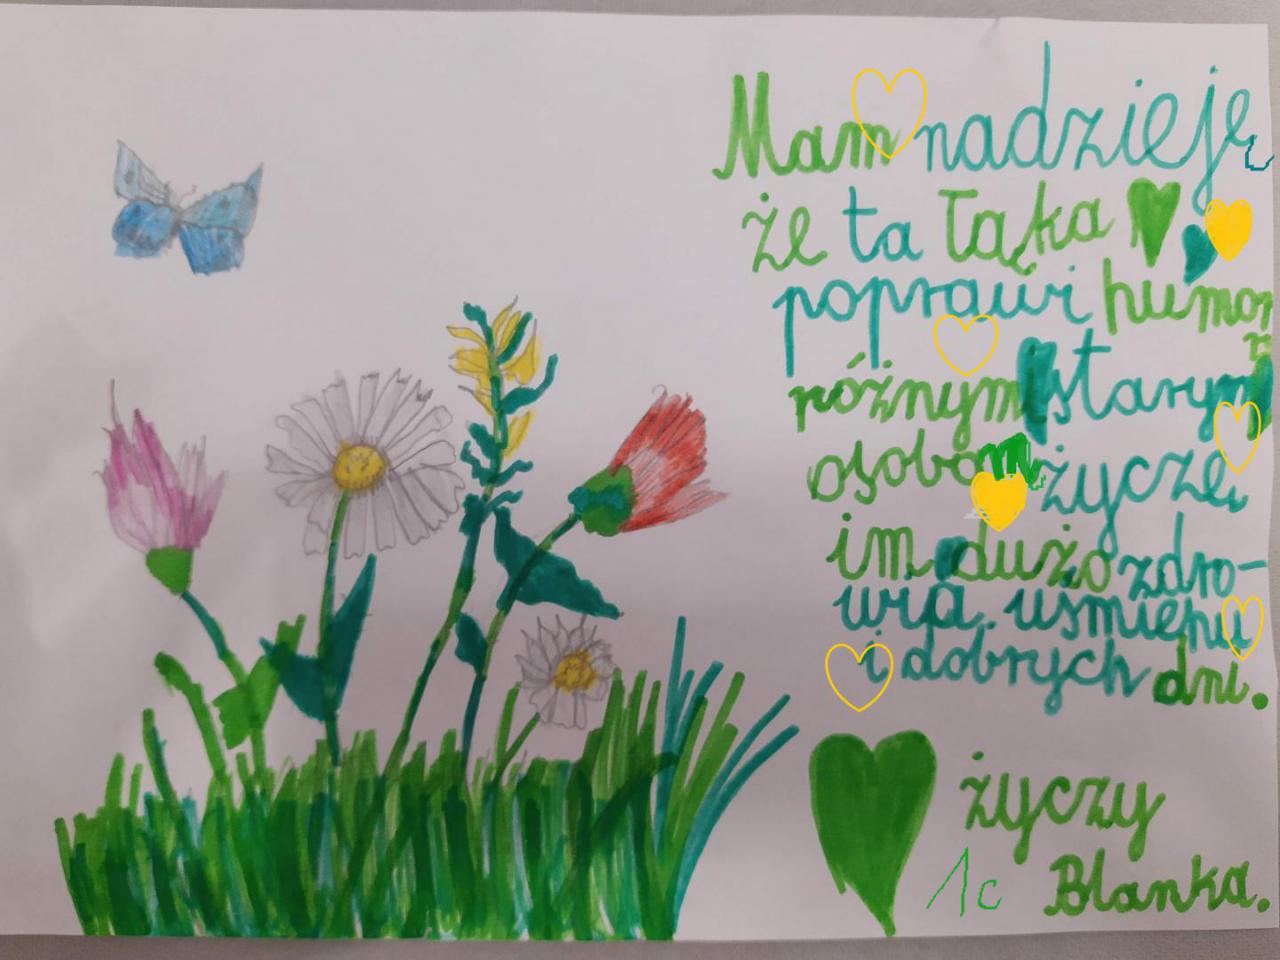 Mam nadzieję
że ta łąka
poprawi humor
różnym starym
osobom życzę
im dużo zdro-
wia. uśmiehu
i dobrych dni.
życzy
1c Blanka.